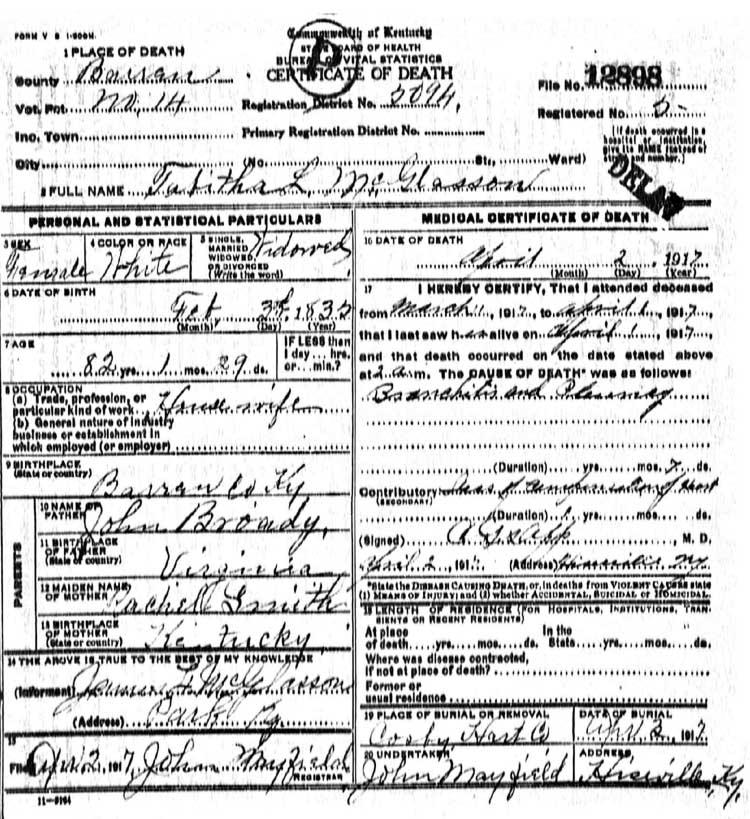 FORM V S 1-600M.
Commonwealth of Kentucky
STATE BOARD OF HEALTH
BUREAU OF VITAL STATISTICS
CERTIFICATE OF DEATH
1 PLACE OF DEATH
County Barren
Vot. Pct. No. 14
Registration District No. 5094,
File No. 12898
Registered No. 5
Inc. Town
Primary Registration District No.
City (No. Str., Ward)
[If death occurred in a hospital or institution, give its NAME instead of street and number.]
2 FULL NAME Tabitha L. McGlasson
PERSONAL AND STATISTICAL PARTICULARS
3 SEX Female
4 COLOR OR RACE White
5 SINGLE, MARRIED, WIDOWED, OR DIVORCED (Write the word) Widowed
6 DATE OF BIRTH
Feb, 3d, 1835
(Month) (Day) (Year)
7 AGE
82 yrs. 1 mos. 29 ds.
IF LESS than 1 day... hrs. or... min.?
8 OCCUPATION
(a) Trade, profession, or particular kind of work House wife
(b) General nature of industry
business or establishment in
which employed (or employer)
9 BIRTHPLACE
(State or country)
Barren Co Ky
PARENTS
10 NAME OF FATHER John Broady,
11 BIRTHPLACE OF FATHER (State or country) Virginia
12 MAIDEN NAME OF MOTHER Rachell Smith
13 BIRTHPLACE OF MOTHER (State or country) Kentucky,
14 THE ABOVE IS TRUE TO THE BEST OF MY KNOWLEDGE
(Informant) McGlasson
(Address) Park Ky.
15
Filed Apr 2, 1917, John Mayfield
REGISTRAR
11-3164
MEDICAL CERTIFICATE OF DEATH
16 DATE OF DEATH
April 2, 1917
(Month) (Day) (Year)
17 I HEREBY CERTIFY, That I attended deceased
from March 1, 1917, to April 1, 1917,
that I last saw her alive on April 1, 1917,
and that death occurred on the date stated above
at 2 a.m. The CAUSE OF DEATH* was as follows:
Bronchitis and
(Duration) yrs. mos. 7 ds.
Contributory Loss of compensation of heart
(SECONDARY)
(Duration) yrs. mos. ds.
(Signed) M. D.
April 2, 191 (Address) Hiseville Ky
*State the DISEASE CAUSING DEATH, or, in deaths from VIOLENT CAUSES state
(1) MEANS OF INJURY; and (2) whether ACCIDENTAL, SUICIDAL or HOMICIDAL.
18 LENGTH OF RESIDENCE (FOR HOSPITALS, INSTITUTIONS, TRANSIENTS OR RECENT RESIDENTS)
At place In the
of death yrs. mos. ds. State yrs. mos. ds.
Where was disease contracted,
if not at place of death?
Former or
usual residence
19 PLACE OF BURIAL OR REMOVAL
Cosby Hart Co
DATE OF BURIAL
Apr. 2, 1917
20 UNDERTAKER
John Mayfield
ADDRESS
Hiseville, Ky